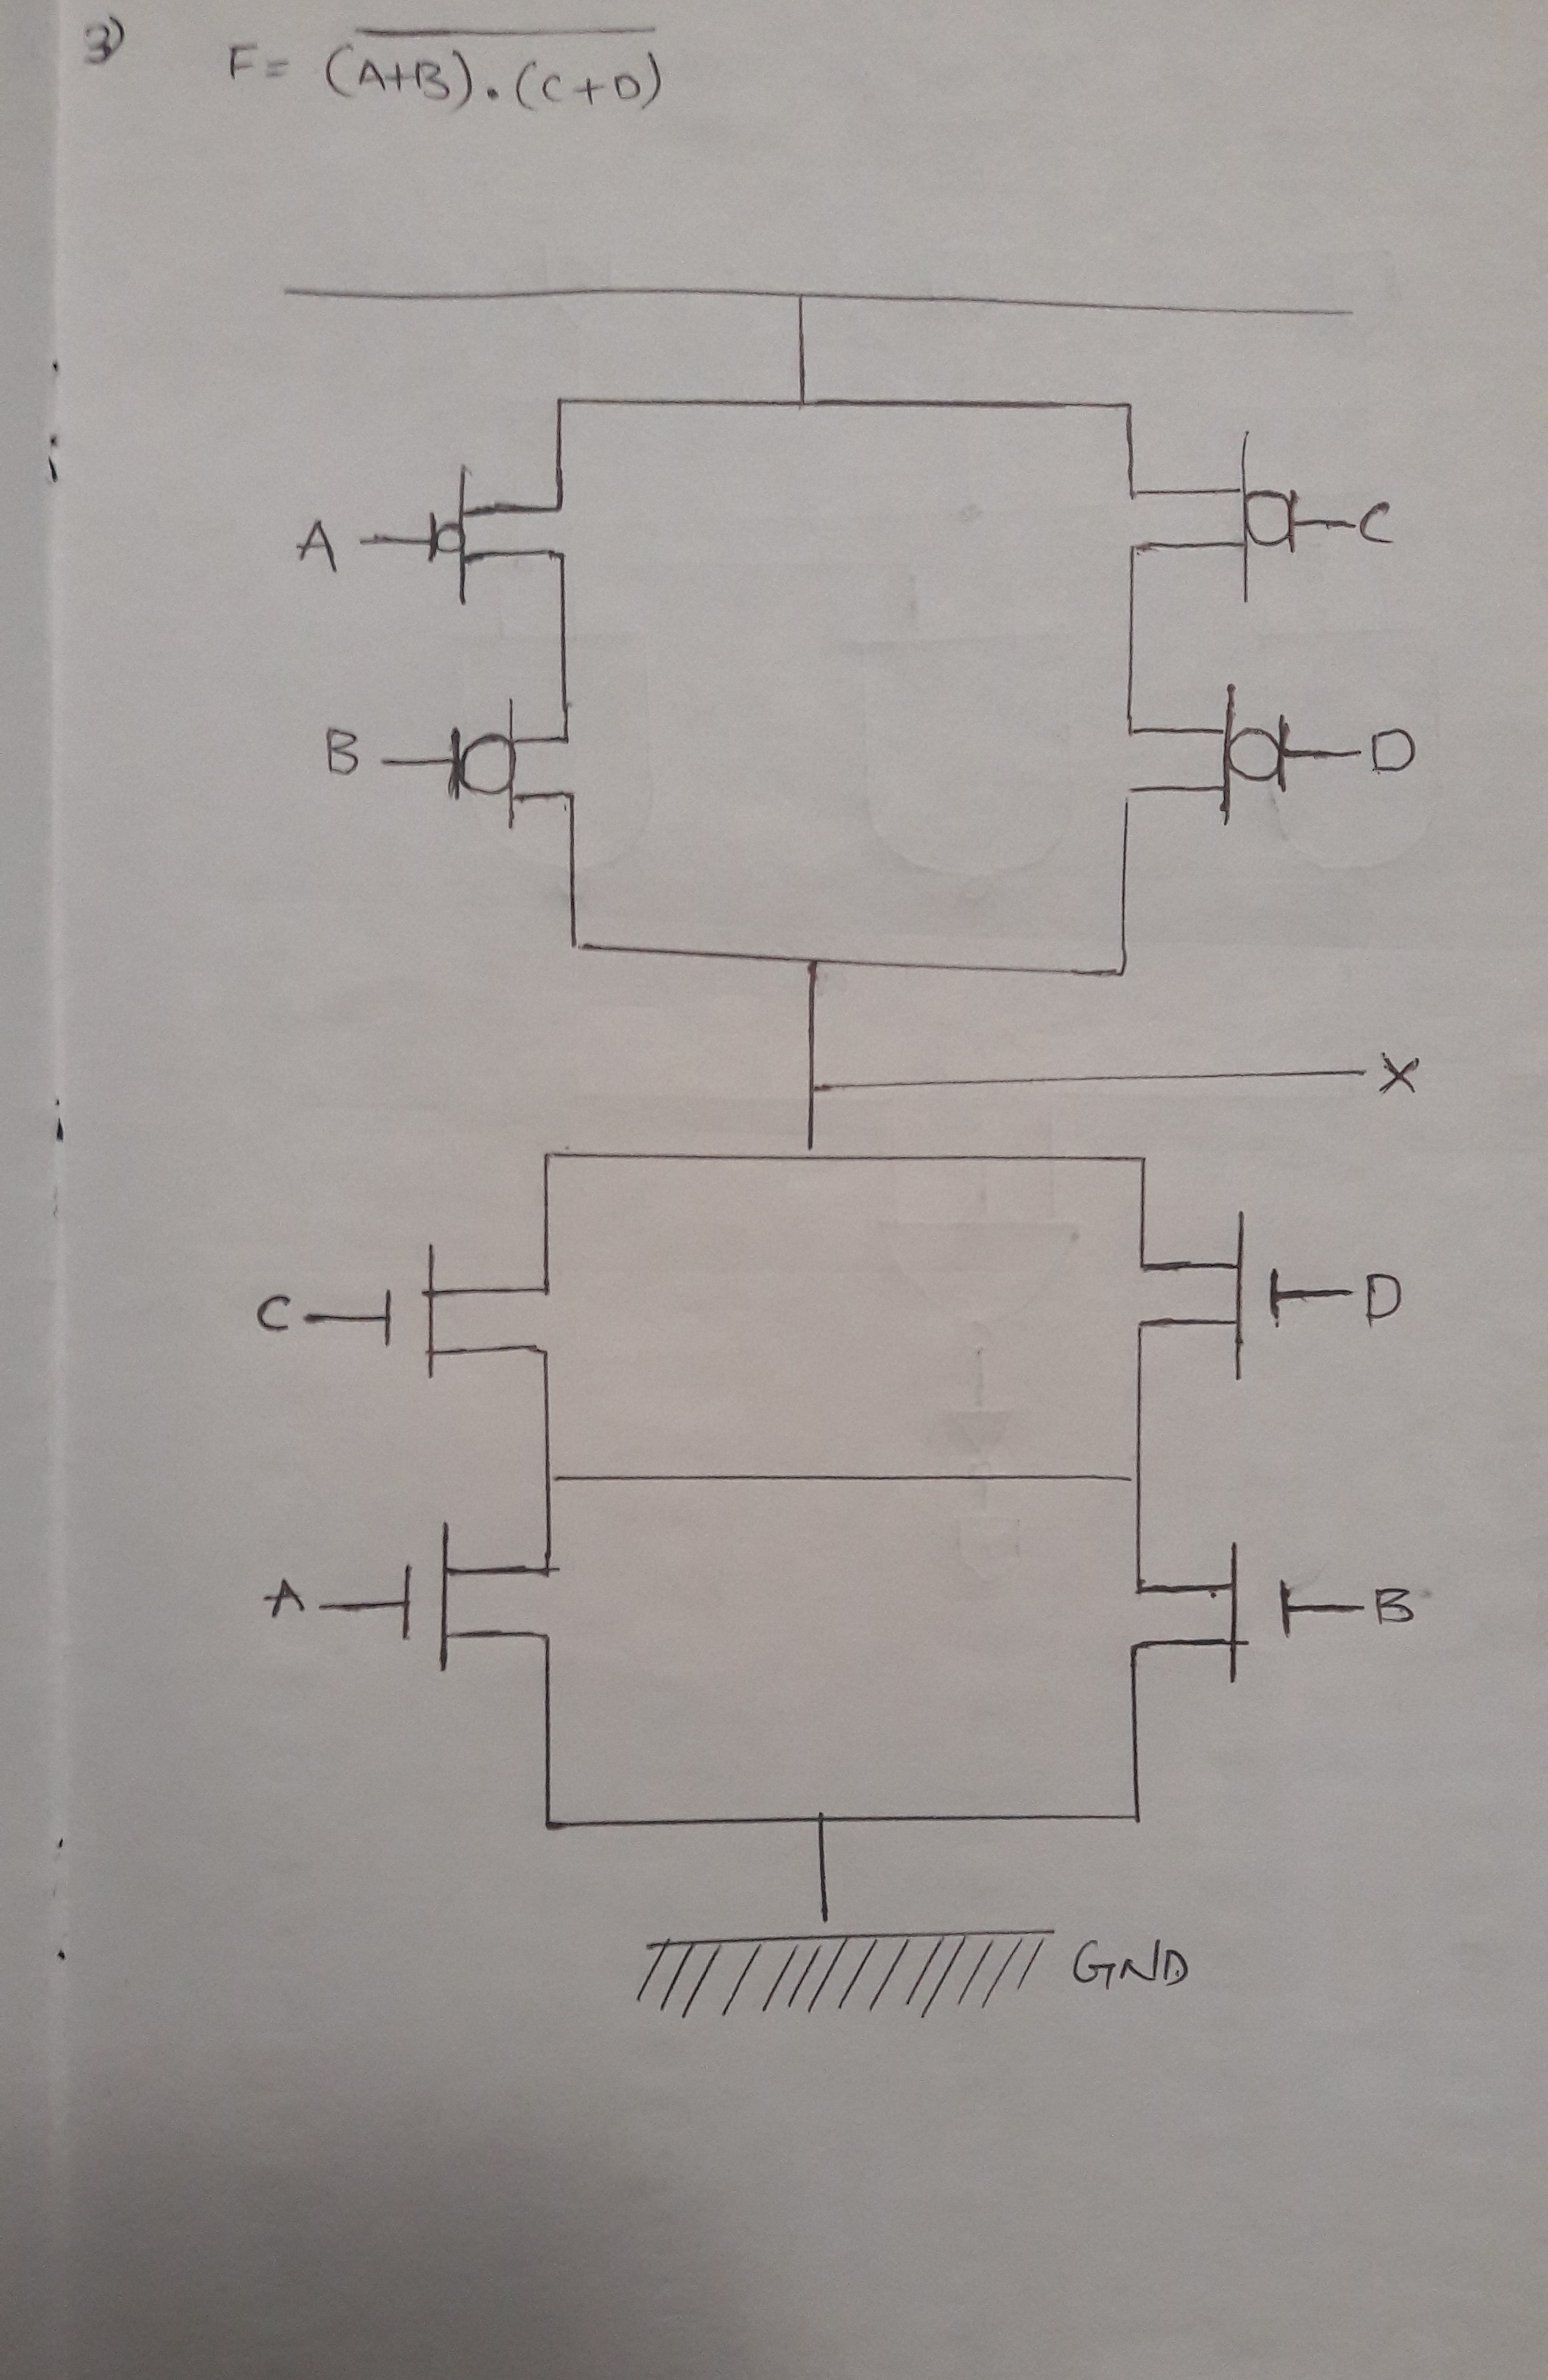 3) F = \overline{(A+B).(C+D)}
A C
B D
X
C D
A B
GND